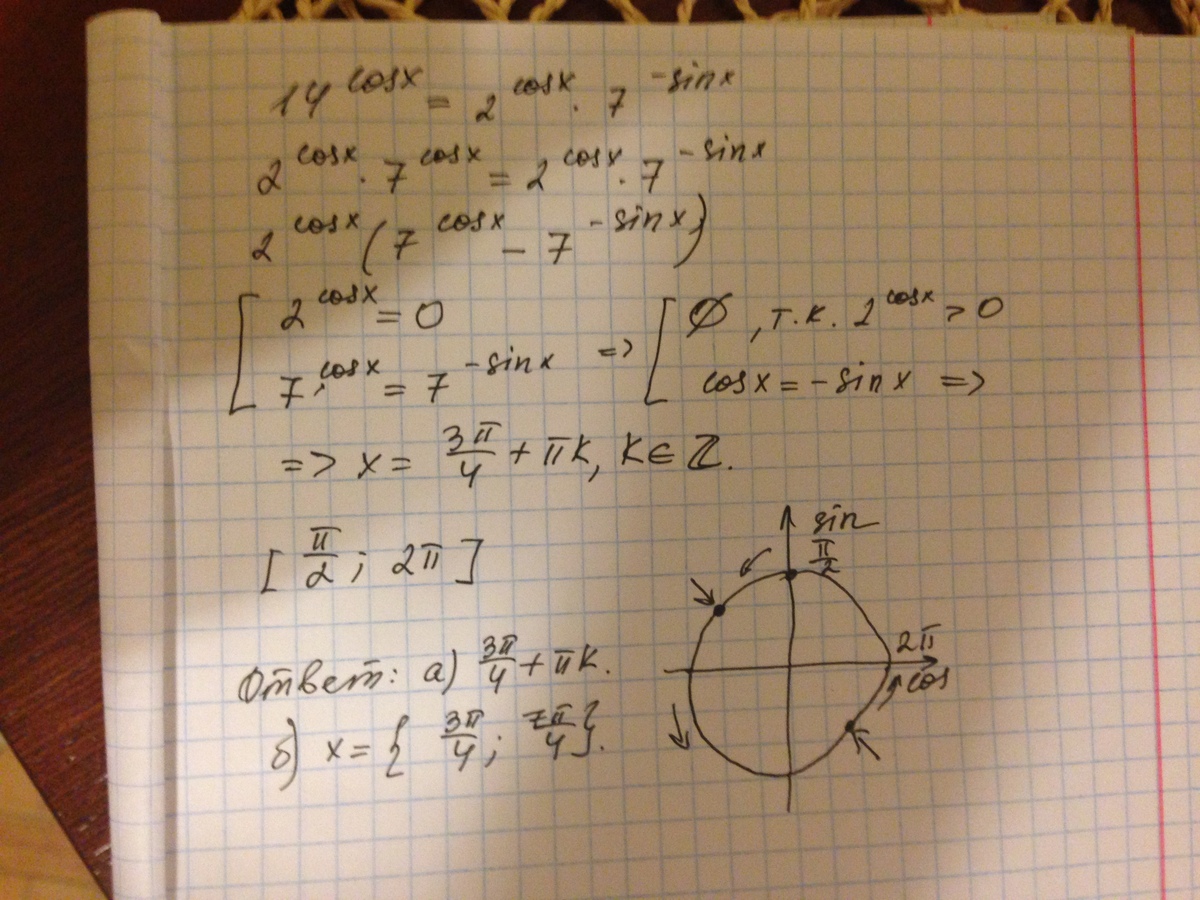 14^cosx = 2^cosx · 7^-sinx
2^cosx · 7^cosx = 2^cosx · 7^-sinx
2^cosx (7^cosx - 7^-sinx)
[ 2^cosx = 0 => [ ∅, т.к. 2^cosx > 0
7^cosx = 7^-sinx cosx = -sinx =>
=> x = 3π/4 + πk, k ∈ ℤ.
[π/2; 2π]
sin
π/2
2π
cos
Ответ: а) 3π/4 + πk.
б) x = {3π/4; 7π/4}.